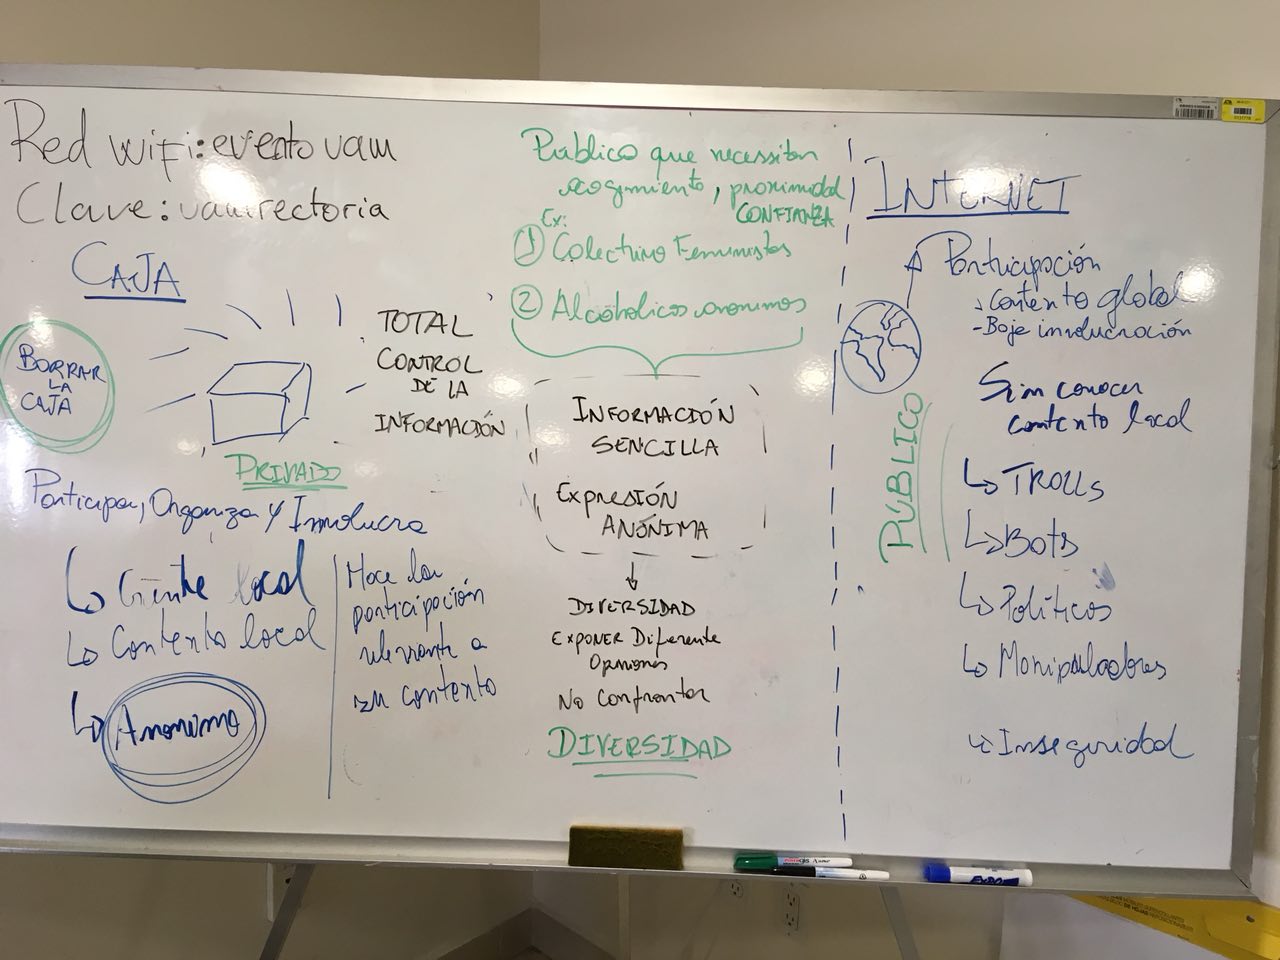 Red wifi: evento uam
Clave: uamrectoria
CAJA
BORRAR
LA
CAJA
TOTAL
CONTROL
DE LA
INFORMACIÓN
PRIVADO
Participa, Organiza y Involucra
↳ Gente local
↳ Contexto local
↳ Anonimo
Hace la
participación
relevante a
su contexto
Público que necessitan
acogimiento, proximidad
CONFIANZA
Ex:
① Colectivo Feministas
② Alcoholicos anonimos
INFORMACIÓN
SENCILLA
Expresión
ANÓNIMA
DIVERSIDAD
EXPONER Diferente
Opiniones
No Confrontar
DIVERSIDAD
INTERNET
Participación
↳ Contexto global
- Baje involucración
PÚBLICO
Sin conocer
contexto local
↳ TROLLS
↳ Bots
↳ Políticos
↳ Manipuladores
↳ Inseguridad
EXPO